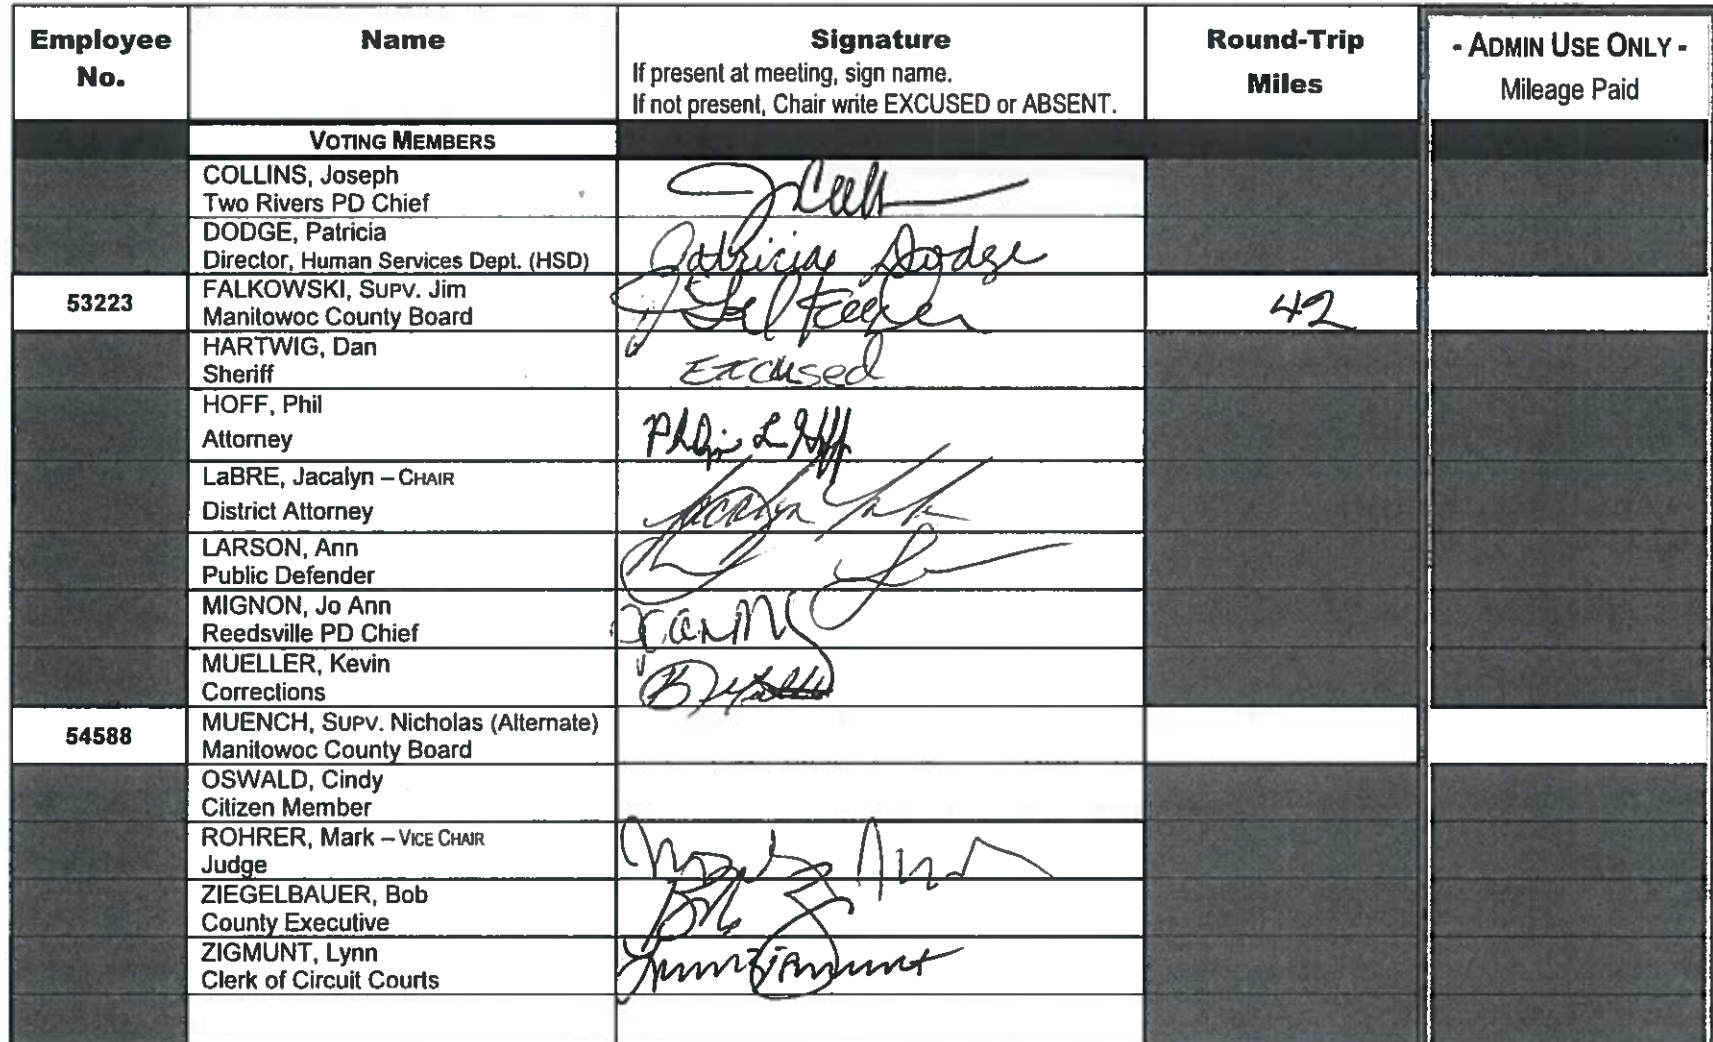 Employee No.
Name
Signature
If present at meeting, sign name.
If not present, Chair write EXCUSED or ABSENT.
Round-Trip Miles
- ADMIN USE ONLY -
Mileage Paid
VOTING MEMBERS
COLLINS, Joseph
Two Rivers PD Chief
DODGE, Patricia
Director, Human Services Dept. (HSD)
Patricia Dodge
53223
FALKOWSKI, SUPV. Jim
Manitowoc County Board
42
HARTWIG, Dan
Sheriff
Excused
HOFF, Phil
Attorney
Philip L Hoff
LaBRE, Jacalyn – CHAIR
District Attorney
LARSON, Ann
Public Defender
MIGNON, Jo Ann
Reedsville PD Chief
MUELLER, Kevin
Corrections
54588
MUENCH, SUPV. Nicholas (Alternate)
Manitowoc County Board
OSWALD, Cindy
Citizen Member
ROHRER, Mark – VICE CHAIR
Judge
ZIEGELBAUER, Bob
County Executive
Bob
ZIGMUNT, Lynn
Clerk of Circuit Courts
Lynn Zigmunt